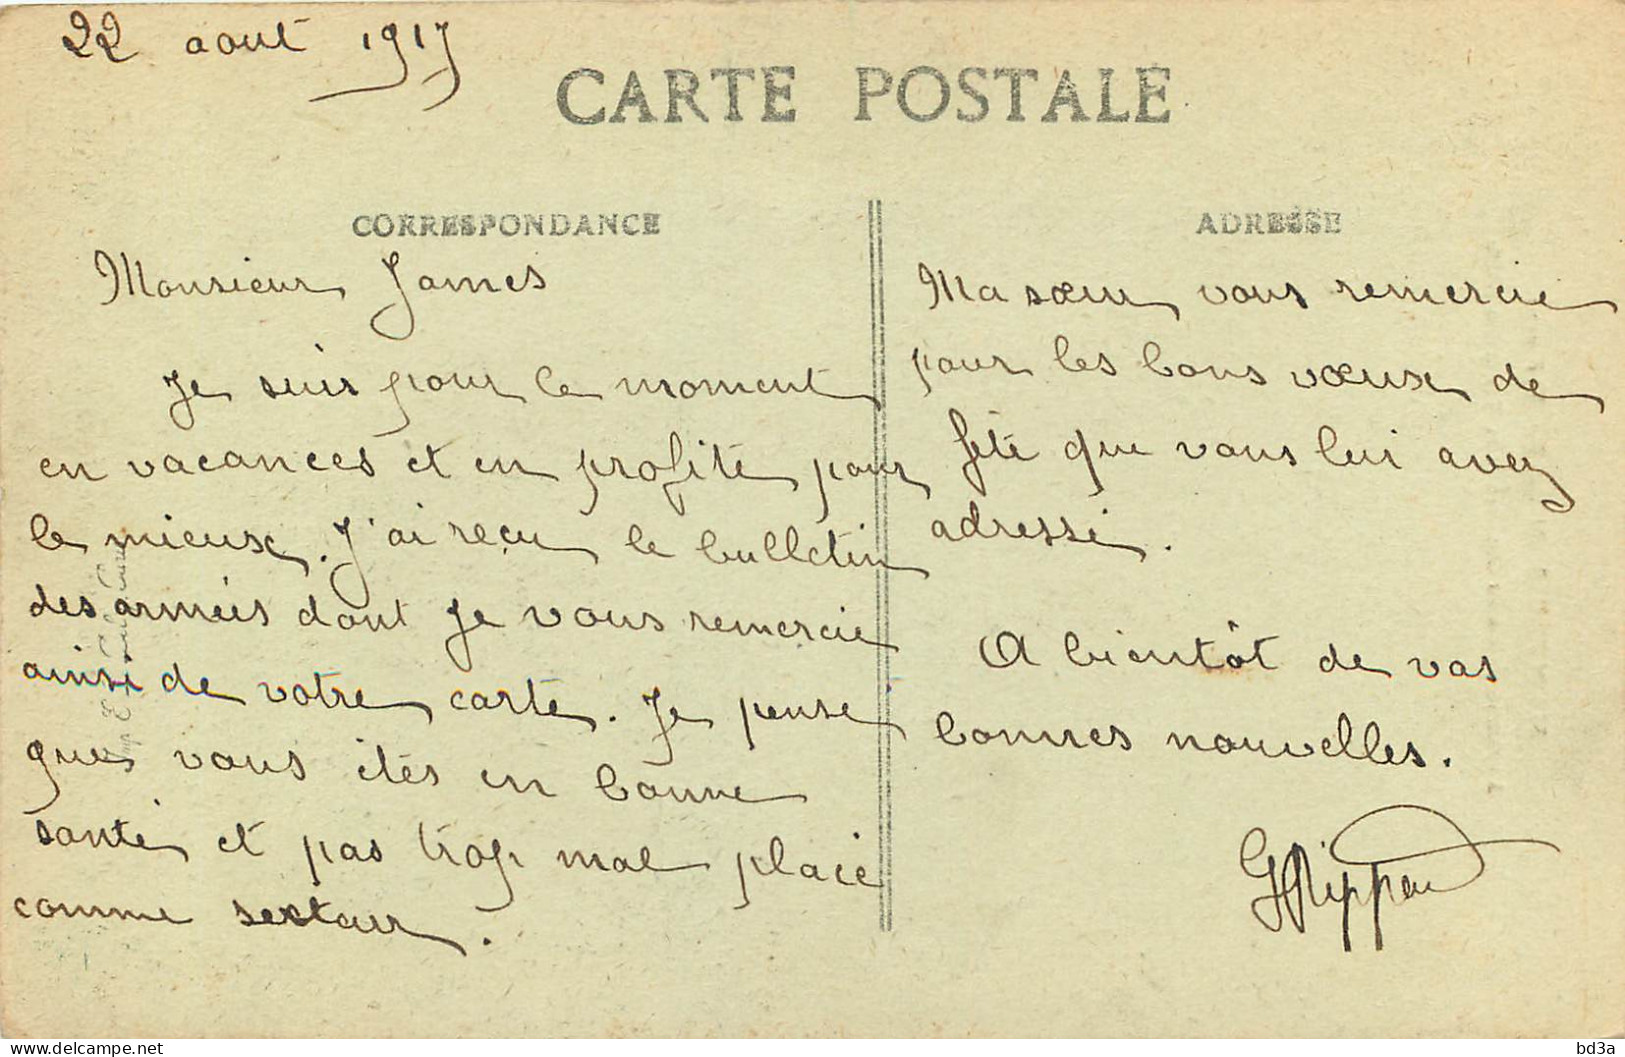 22 aout 1917
CARTE POSTALE
CORRESPONDANCE
Monsieur James
Je suis pour le moment
en vacances et en profite pour
le mieux. J'ai reçu le bulletin
des armées dont je vous remercie
ainsi de votre carte. Je pense
que vous êtes en bonne
santé et pas trop mal placé
comme secteur.
ADRESSE
Ma sœur vous remercie
pour les bons vœux de
fête que vous lui avez
adressé.
A bientôt de vos
bonnes nouvelles.
delcampe.net
bd3a